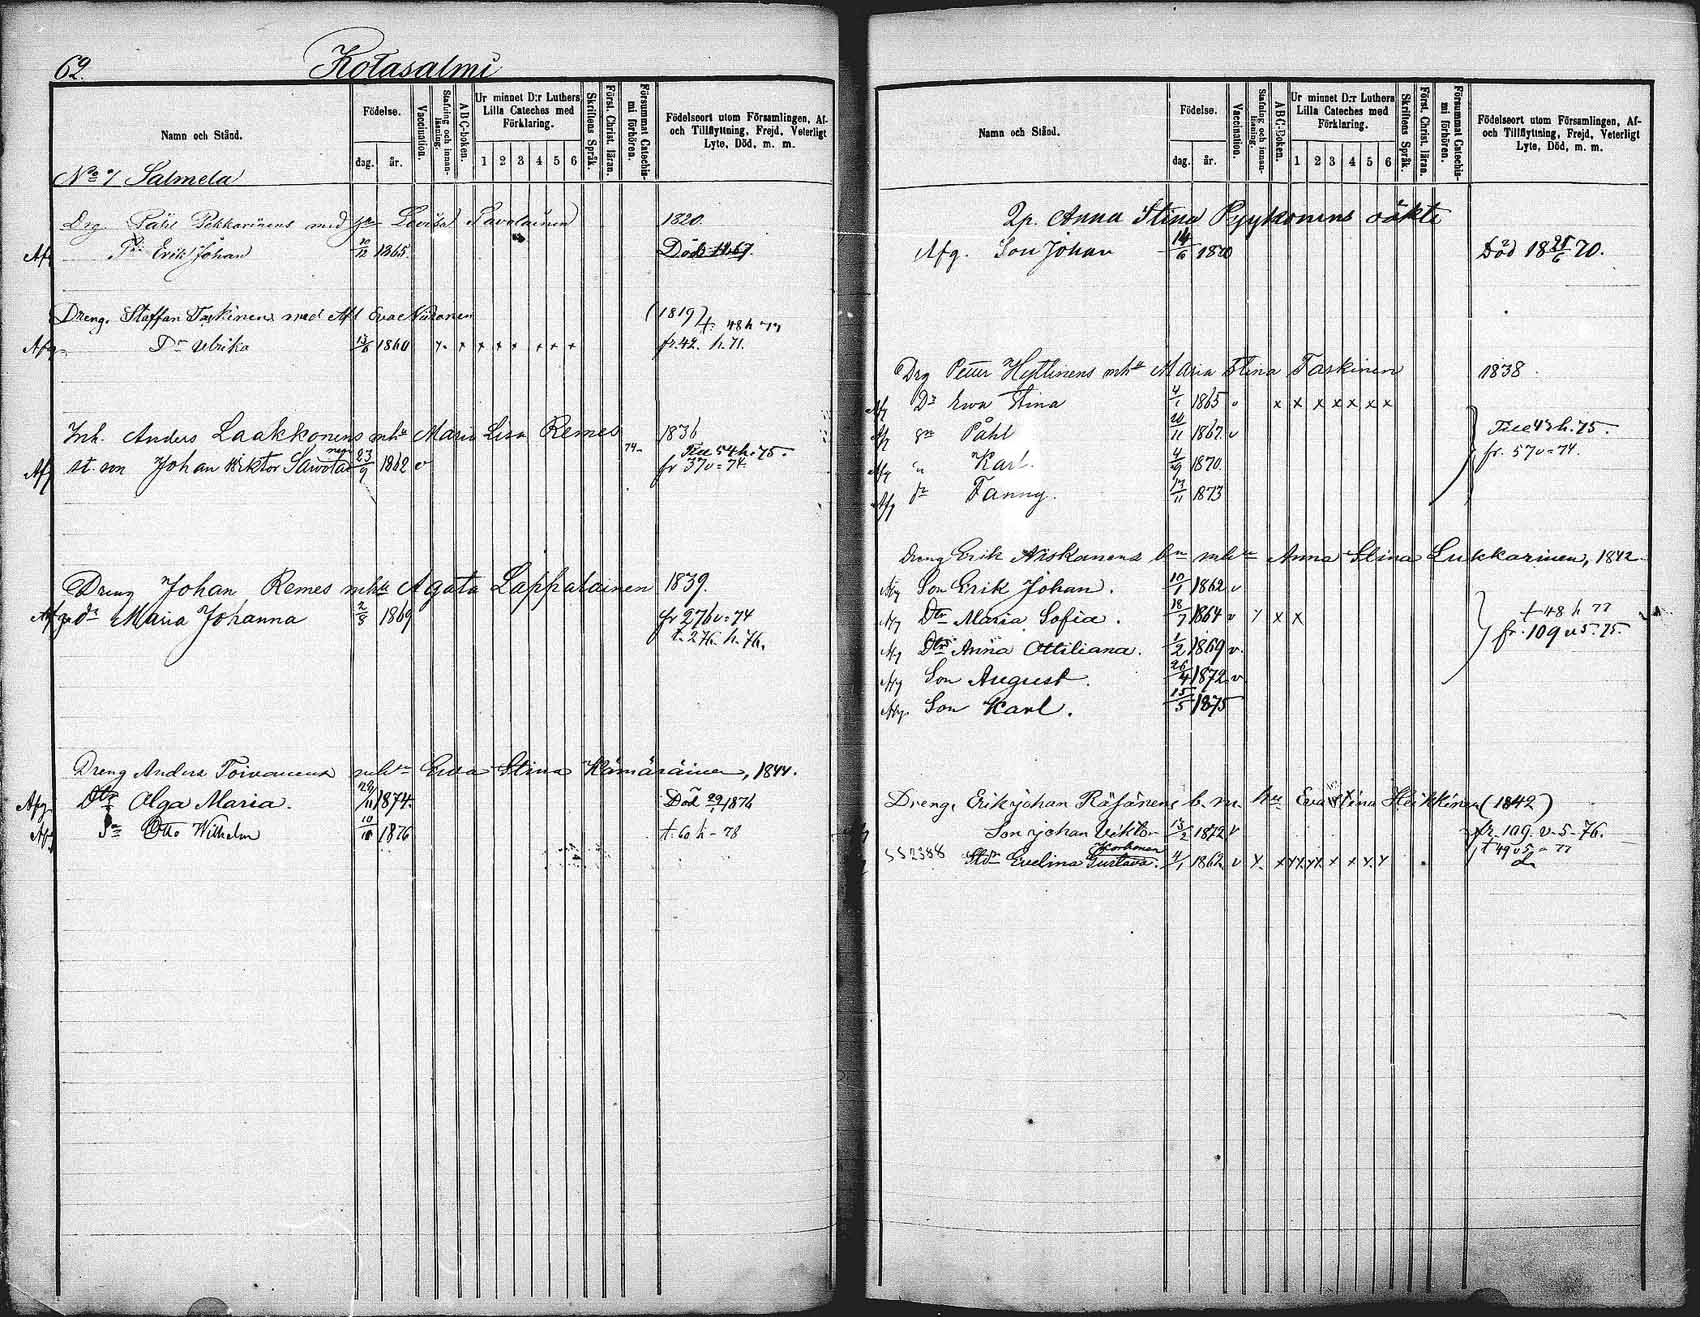 62.
Kotasalmi
Namn och Stånd.
Födelse.
dag. år.
Vaccination.
Stafning och innanläsning.
ABC-boken.
Ur minnet D:r Luthers Lilla Cateches med Förklaring.
1 2 3 4 5 6
Skriftens Språk.
Först. Christ. läran.
Försummat Catechismi förhören.
Födelseort utom Församlingen, Af- och Tillflyttning, Frejd, Veterligt Lyte, Död, m. m.
No 1 Salmela
Drg. Påhl Pekkarinens med hu Lovisa Savolainen 1820.
Afg Sn Erik Johan 10/12 1865. Död 1867.
Dreng. Staffan Taskinens med Afl Eva Niiranen (1819) t. 48 h 77
Afg. Dr Ulrika 13/6 1860 x x x x x x x x fr. 42. h. 71.
Inh. Anders Laakkonens mhu Maria Lisa Remes 1836
Afg st. son Johan Viktor Savolainen 23/9 1862 v 74 Till 54 h. 75 fr 37 v = 74.
Dreng Johan Remes mhu Agata Lappalainen 1839.
Afg. dr Maria Johanna 2/3 1869 fr 276 v = 74
t. 276. h. 76.
Dreng Anders Toivanens mhu Ewa Stina Hämäräinen, 1844.
Afg Dtr Olga Maria. 29/11 1874 Död 29/1 1876
Afg Sn Otto Wilhelm 10/10 1876 t. 60 h - 78
Namn och Stånd.
Födelse.
dag. år.
Vaccination.
Stafning och innanläsning.
ABC-boken.
Ur minnet D:r Luthers Lilla Cateches med Förklaring.
1 2 3 4 5 6
Skriftens Språk.
Först. Christ. läran.
Försummat Catechismi förhören.
Födelseort utom Församlingen, Af- och Tillflyttning, Frejd, Veterligt Lyte, Död, m. m.
Qp. Anna Stina Pyykönens oäkta
Afg. Son Johan 14/6 1870 Död 18 21/6 70.
Drg Petter Hyttinens mhu Maria Stina Taskinen 1838.
Afg Dr Ewa Stina 4/1 1865 v x x x x x x x
Afg Sn Påhl 20/11 1867. v Till 43 h. 75.
Afg " Karl. 4/9 1870. fr. 57 v = 74.
Afg Dr Fanny. 13/11 1873
Dreng Erik Niskanens bn mhu Anna Stina Lukkarinen, 1842.
Afg Son Erik Johan. 10/1 1862 v
Afg Dtr Maria Sofia. 18/7 1864 v x x x t 48 h 77
Afg Dtr Anna Ottiliana. 1/2 1869 v. fr. 109 v 5 - 75.
Afg Son August. 26/4 1872 v
Afg. Son Karl. 15/5 1875
Dreng. Erik Johan Räsänens b. m hu Eva Stina Heikkinen (1842)
Son Johan Viktor 13/2 1872 v fr. 109. v - 5 - 76.
t 49 v 5 - 77
Stdr Evelina Gustava Korhonen 4/1 1862 v x x x x x x x x x x d:o